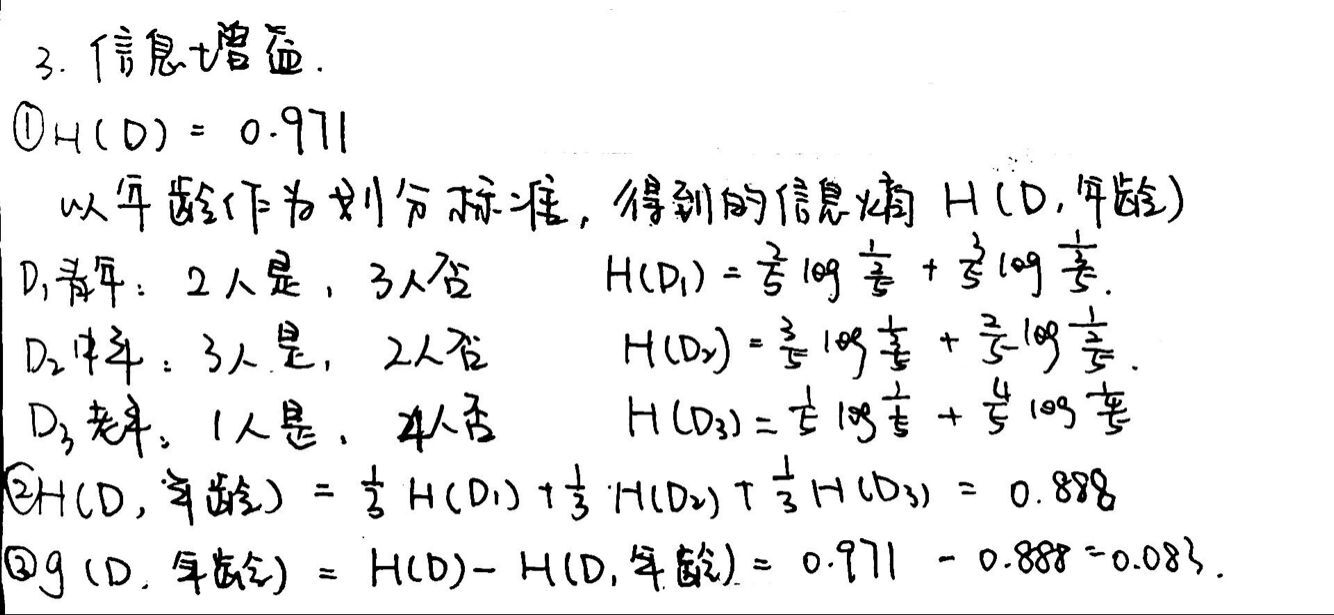 3. 信息增益.
①H(D) = 0.971
以年龄作为划分标准, 得到的信息熵 H(D,年龄)
D₁青年: 2人是, 3人否 H(D₁) = 2/5 log 1/(2/5) + 3/5 log 1/(3/5).
D₂中年: 3人是, 2人否 H(D₂) = 3/5 log 1/(3/5) + 2/5 log 1/(2/5).
D₃老年: 1人是, 4人否 H(D₃) = 1/5 log 1/(1/5) + 4/5 log 1/(4/5)
②H(D,年龄) = 1/3 H(D₁) + 1/3 H(D₂) + 1/3 H(D₃) = 0.888
③g(D,年龄) = H(D) - H(D,年龄) = 0.971 - 0.888 = 0.083.